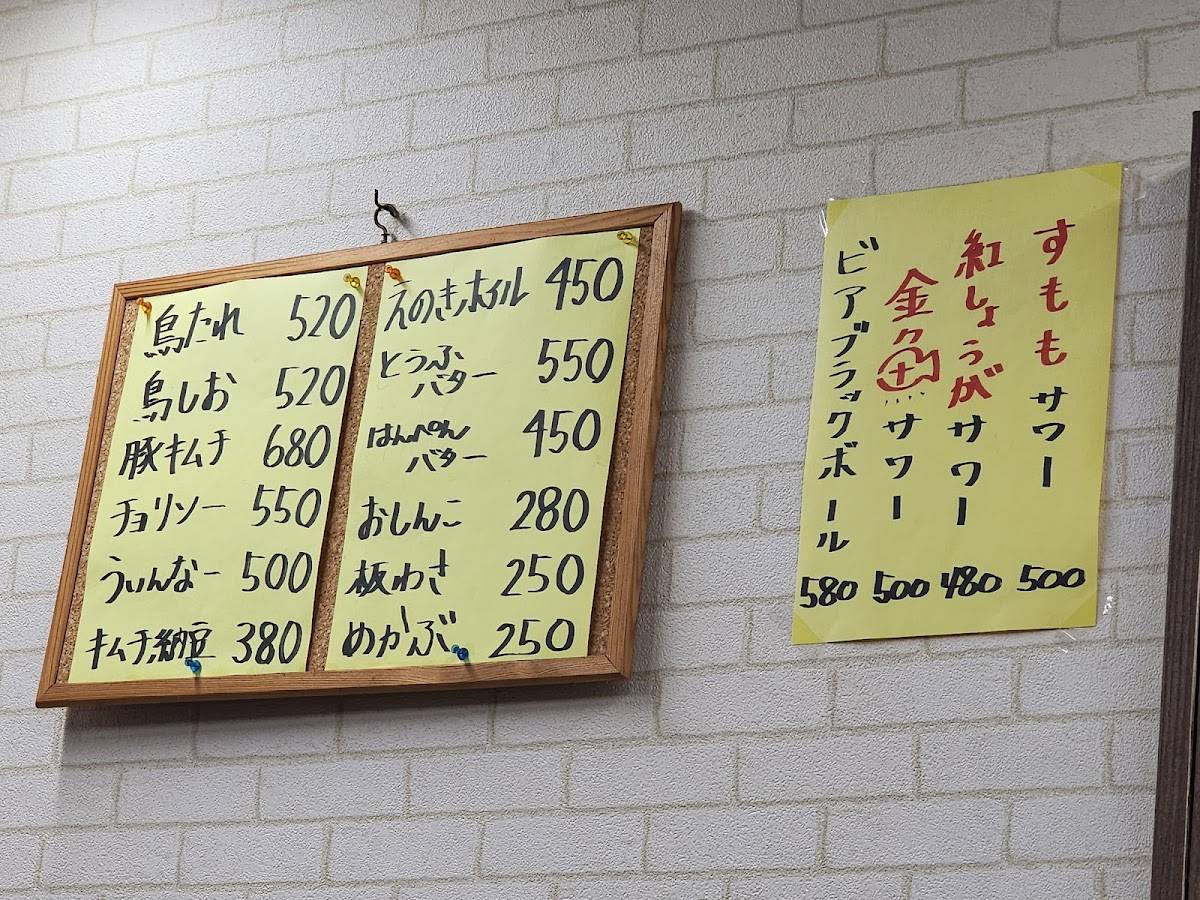 鳥たれ 520
鳥しお 520
豚キムチ 680
チョリソー 550
ういんなー 500
キムチ納豆 380
えのきホイル 450
とうふ
バター 550
はんぺん
バター 450
おしんこ 280
板わさ 250
めかぶ 250
すももサワー 500
紅しょうがサワー 480
金魚サワー 500
ビアブラックボール 580